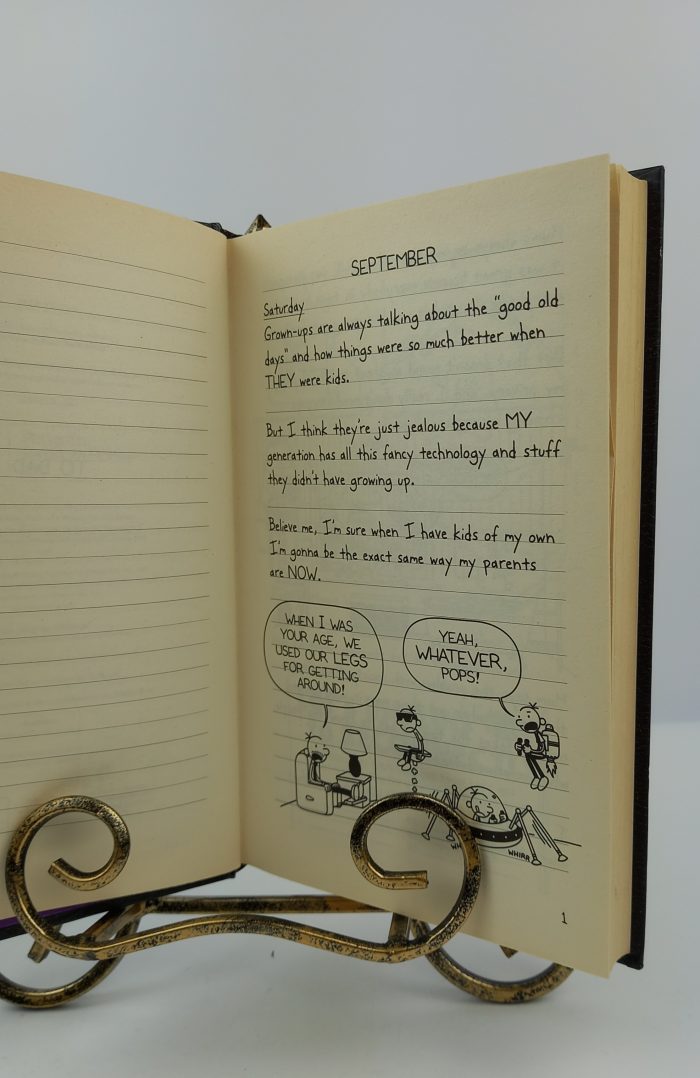 SEPTEMBER
Saturday
Grown-ups are always talking about the "good old
days" and how things were so much better when
THEY were kids.
But I think they're just jealous because MY
generation has all this fancy technology and stuff
they didn't have growing up.
Believe me, I'm sure when I have kids of my own
I'm gonna be the exact same way my parents
are NOW.
WHEN I WAS
YOUR AGE, WE
USED OUR LEGS
FOR GETTING
AROUND!
YEAH,
WHATEVER,
POPS!
WHIRR
1